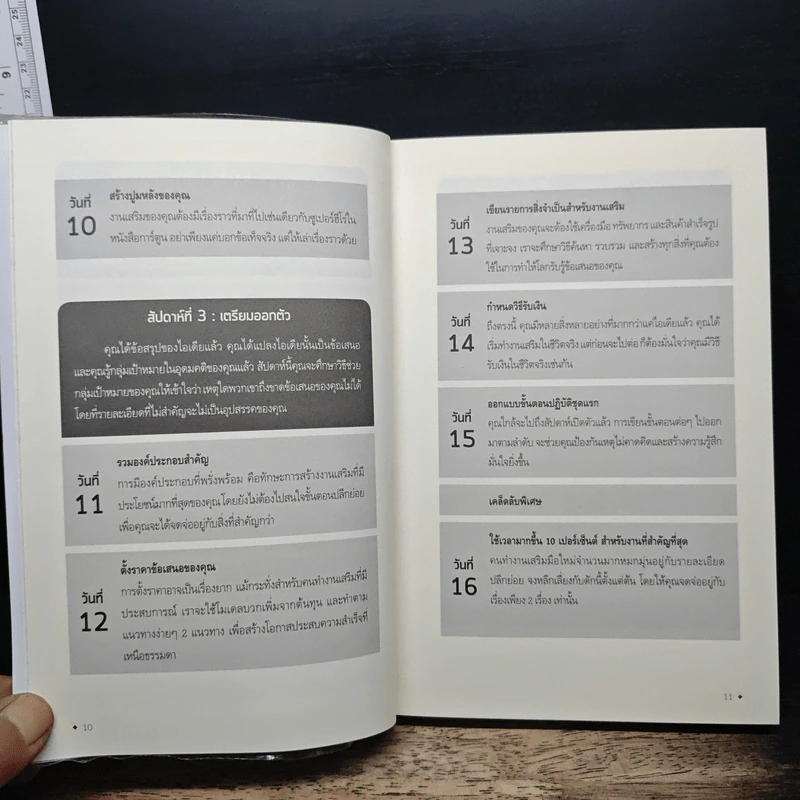 วันที่
10
สร้างปูมหลังของคุณ
งานเสริมของคุณต้องมีเรื่องราวที่มาที่ไปเช่นเดียวกับซูเปอร์ฮีโร่ใน
หนังสือการ์ตูน อย่าเพียงแค่บอกข้อเท็จจริง แต่ให้เล่าเรื่องราวด้วย
สัปดาห์ที่ 3 : เตรียมออกตัว
คุณได้ข้อสรุปของไอเดียแล้ว คุณได้แปลงไอเดียนั้นเป็นข้อเสนอ
และคุณรู้กลุ่มเป้าหมายในอุดมคติของคุณแล้ว สัปดาห์นี้คุณจะศึกษาวิธีช่วย
กลุ่มเป้าหมายของคุณให้เข้าใจว่า เหตุใดพวกเขาถึงขาดข้อเสนอของคุณไม่ได้
โดยที่รายละเอียดที่ไม่สำคัญจะไม่เป็นอุปสรรคของคุณ
วันที่
11
รวมองค์ประกอบสำคัญ
การมีองค์ประกอบที่พรั่งพร้อม คือทักษะการสร้างงานเสริมที่มี
ประโยชน์มากที่สุดของคุณ โดยยังไม่ต้องไปสนใจขั้นตอนปลีกย่อย
เพื่อคุณจะได้จดจ่ออยู่กับสิ่งที่สำคัญกว่า
วันที่
12
ตั้งราคาข้อเสนอของคุณ
การตั้งราคาอาจเป็นเรื่องยาก แม้กระทั่งสำหรับคนทำงานเสริมที่มี
ประสบการณ์ เราจะใช้โมเดลบวกเพิ่มจากต้นทุน และทำตาม
แนวทางง่ายๆ 2 แนวทาง เพื่อสร้างโอกาสประสบความสำเร็จที่
เหนือธรรมดา
10
วันที่
13
เขียนรายการสิ่งจำเป็นสำหรับงานเสริม
งานเสริมของคุณจะต้องใช้เครื่องมือ ทรัพยากร และสินค้าสำเร็จรูป
ที่เจาะจง เราจะศึกษาวิธีค้นหา รวบรวม และสร้างทุกสิ่งที่คุณต้อง
ใช้ในการทำให้โลกรับรู้ข้อเสนอของคุณ
วันที่
14
กำหนดวิธีรับเงิน
ถึงตรงนี้ คุณมีหลายสิ่งหลายอย่างที่มากกว่าแค่ไอเดียแล้ว คุณได้
เริ่มทำงานเสริมในชีวิตจริง แต่ก่อนจะไปต่อ ก็ต้องมั่นใจว่าคุณมีวิธี
รับเงินในชีวิตจริงเช่นกัน
วันที่
15
ออกแบบขั้นตอนปฏิบัติชุดแรก
คุณใกล้จะไปถึงสัปดาห์เปิดตัวแล้ว การเขียนขั้นตอนต่อๆ ไปออก
มาตามลำดับ จะช่วยคุณป้องกันเหตุไม่คาดคิดและสร้างความรู้สึก
มั่นใจยิ่งขึ้น
เคล็ดลับพิเศษ
วันที่
16
ใช้เวลามากขึ้น 10 เปอร์เซ็นต์ สำหรับงานที่สำคัญที่สุด
คนทำงานเสริมมือใหม่จำนวนมากหมกมุ่นอยู่กับรายละเอียด
ปลีกย่อย จงหลีกเลี่ยงกับดักนี้ตั้งแต่ต้น โดยให้คุณจดจ่ออยู่กับ
เรื่องเพียง 2 เรื่อง เท่านั้น
11